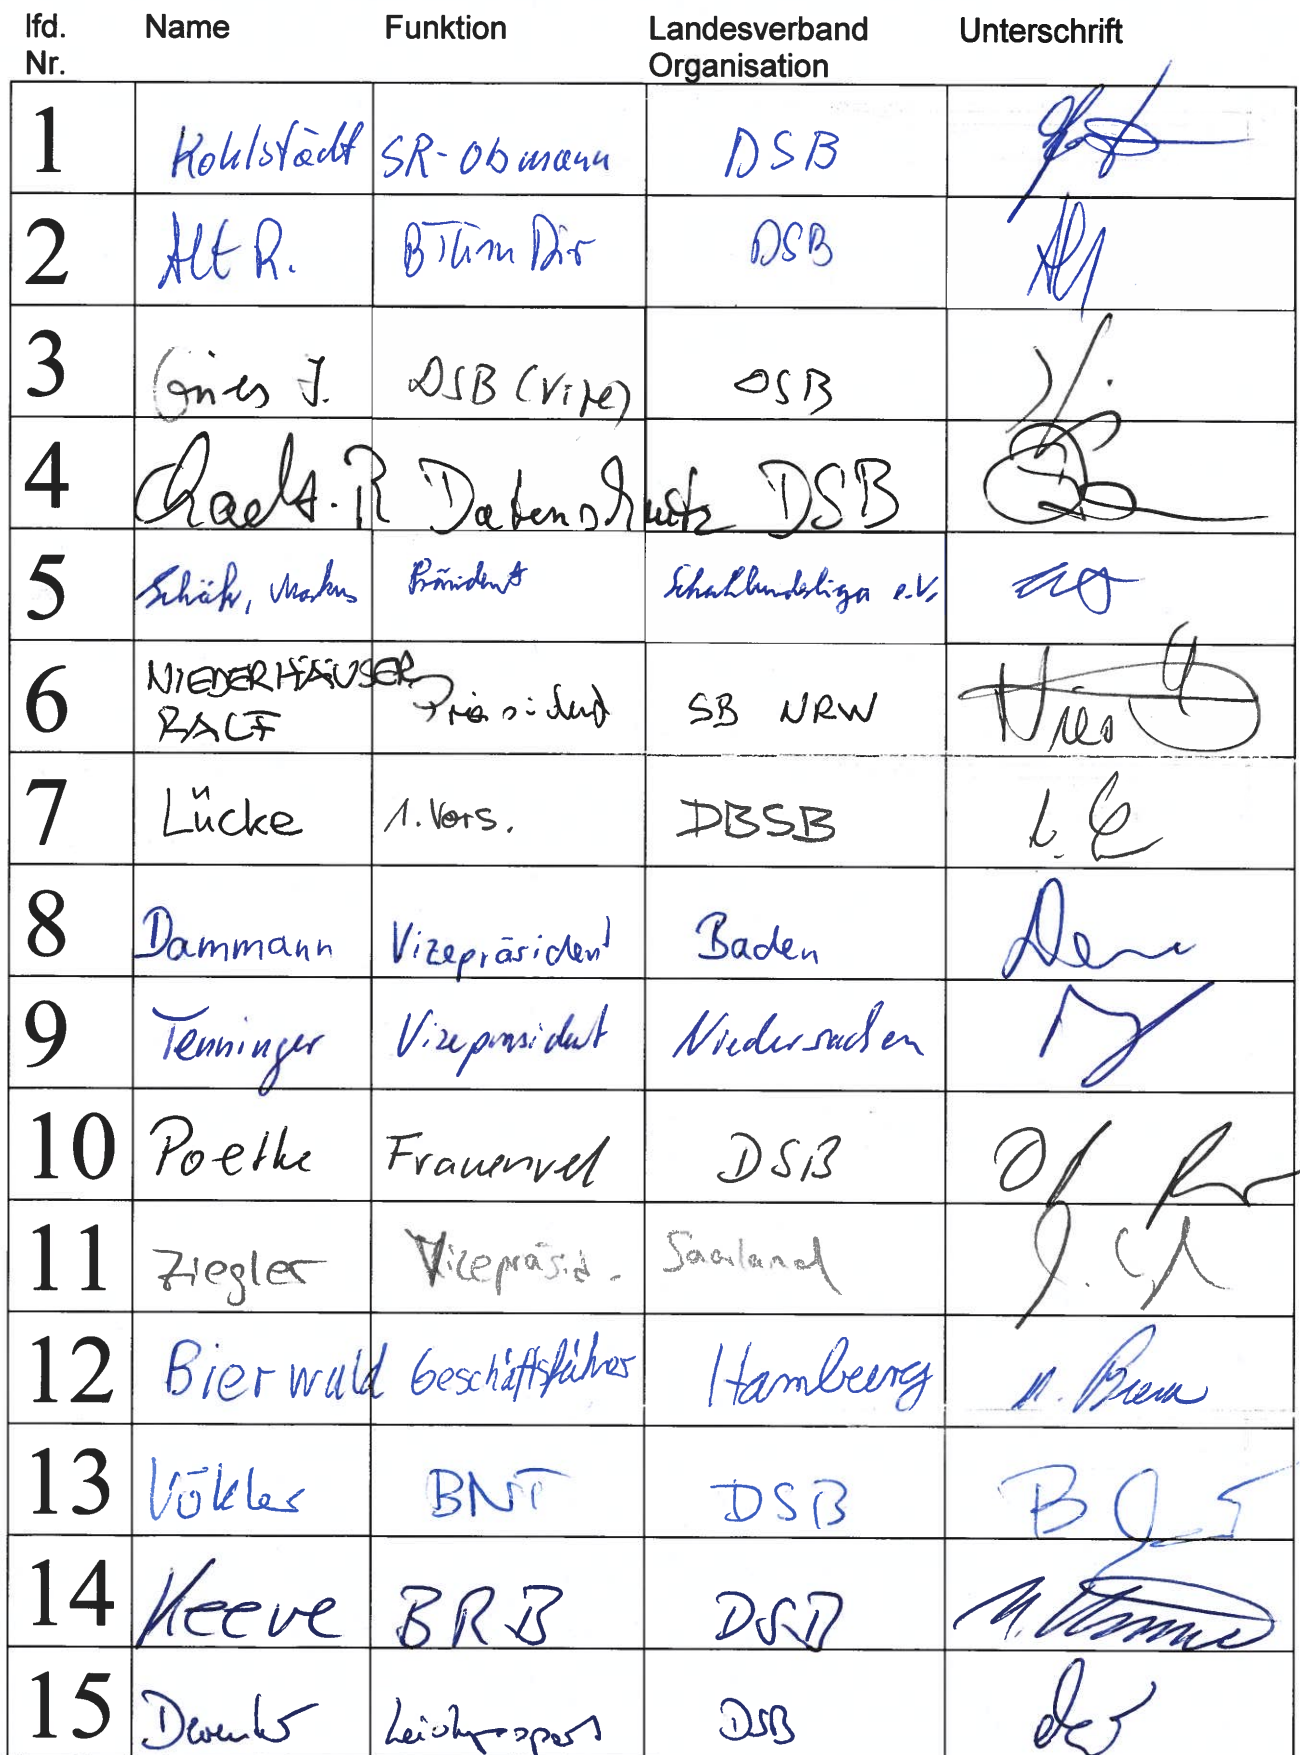 lfd. Nr. Name Funktion Landesverband Organisation Unterschrift
1 Kohlstädt SR-Obmann DSB
2 Alt R. BTurnDir DSB
3 J. DSB (Vize) DSB
4 R Datenschutz DSB
5 Schäfer, Markus Präsident Schachbundesliga e.V.
6 NIEDERHÄUSER RALF Präsident SB NRW
7 Lücke 1. Vors. DBSB
8 Dammann Vizepräsident Baden
9 Tenninger Vizepräsident Niedersachsen
10 Poethke DSB
11 Ziegler Vizepräsid. Saarland
12 Bierwald Geschäftsführer Hamburg
13 Vökler BNT DSB
14 Keeve BRB DSB
15 Leistungssport DSB